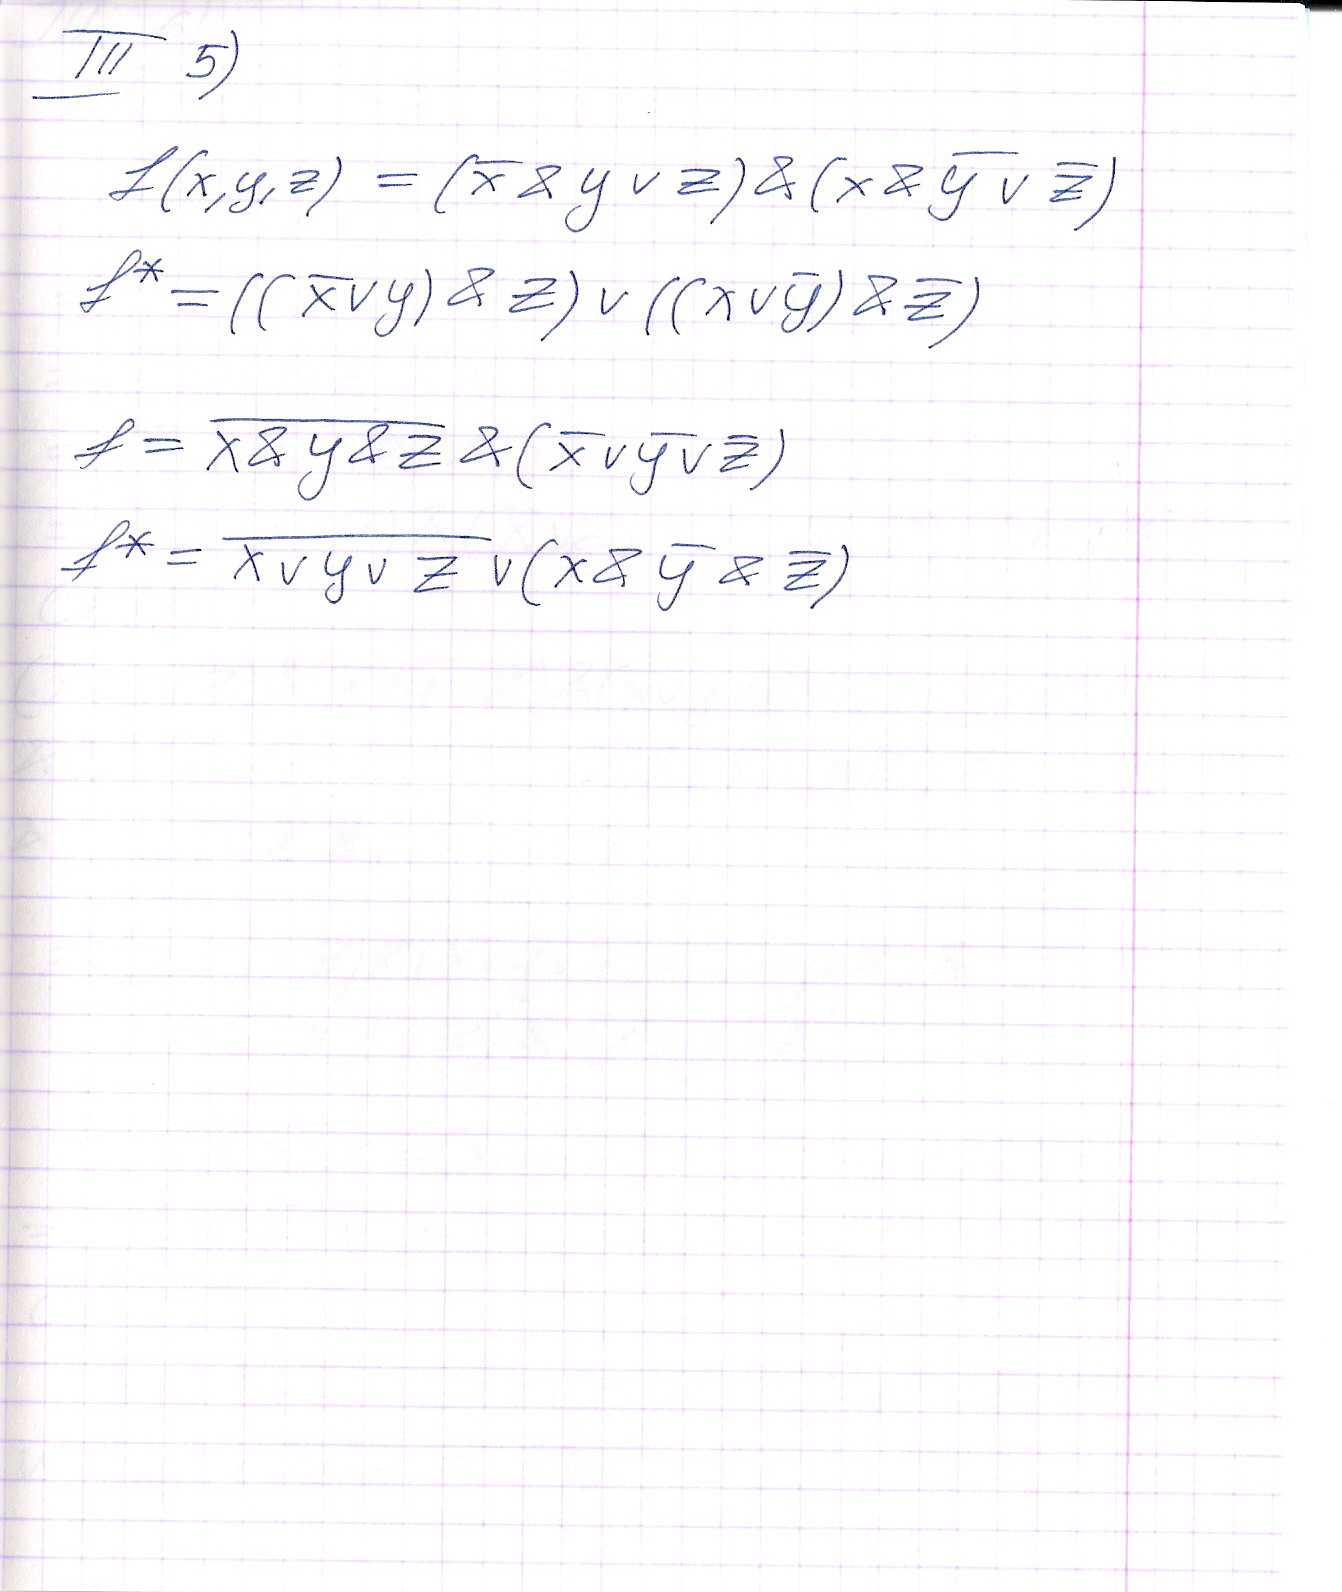 III 5)
f(x,y,z) = (x̅ & y ∨ z) & (x & y̅ ∨ z̅)
f* = ((x̅ ∨ y) & z) ∨ ((x ∨ y̅) & z̅)
f = x̅ ̅&̅ ̅y̅ ̅&̅ ̅z̅ & (x̅ ∨ y̅ ∨ z̅)
f* = x̅ ̅∨̅ ̅y̅ ̅∨̅ ̅z̅ ∨ (x & y̅ & z̅)